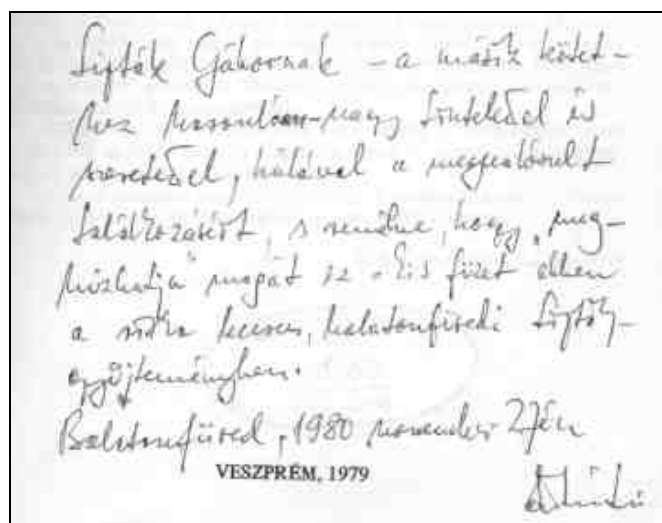 Lipták Gábornak – a másik kötet-
hez hasonlóan – nagy tisztelettel és
szeretettel, hálával a megvalósult
találkozásért, s remélve, hogy „meg-
húzhatja” magát ez a kis füzet ebben
a ritka becses, balatonfüredi Lipták-
gyűjteményben.
Balatonfüred, 1980 november 27én
VESZPRÉM, 1979